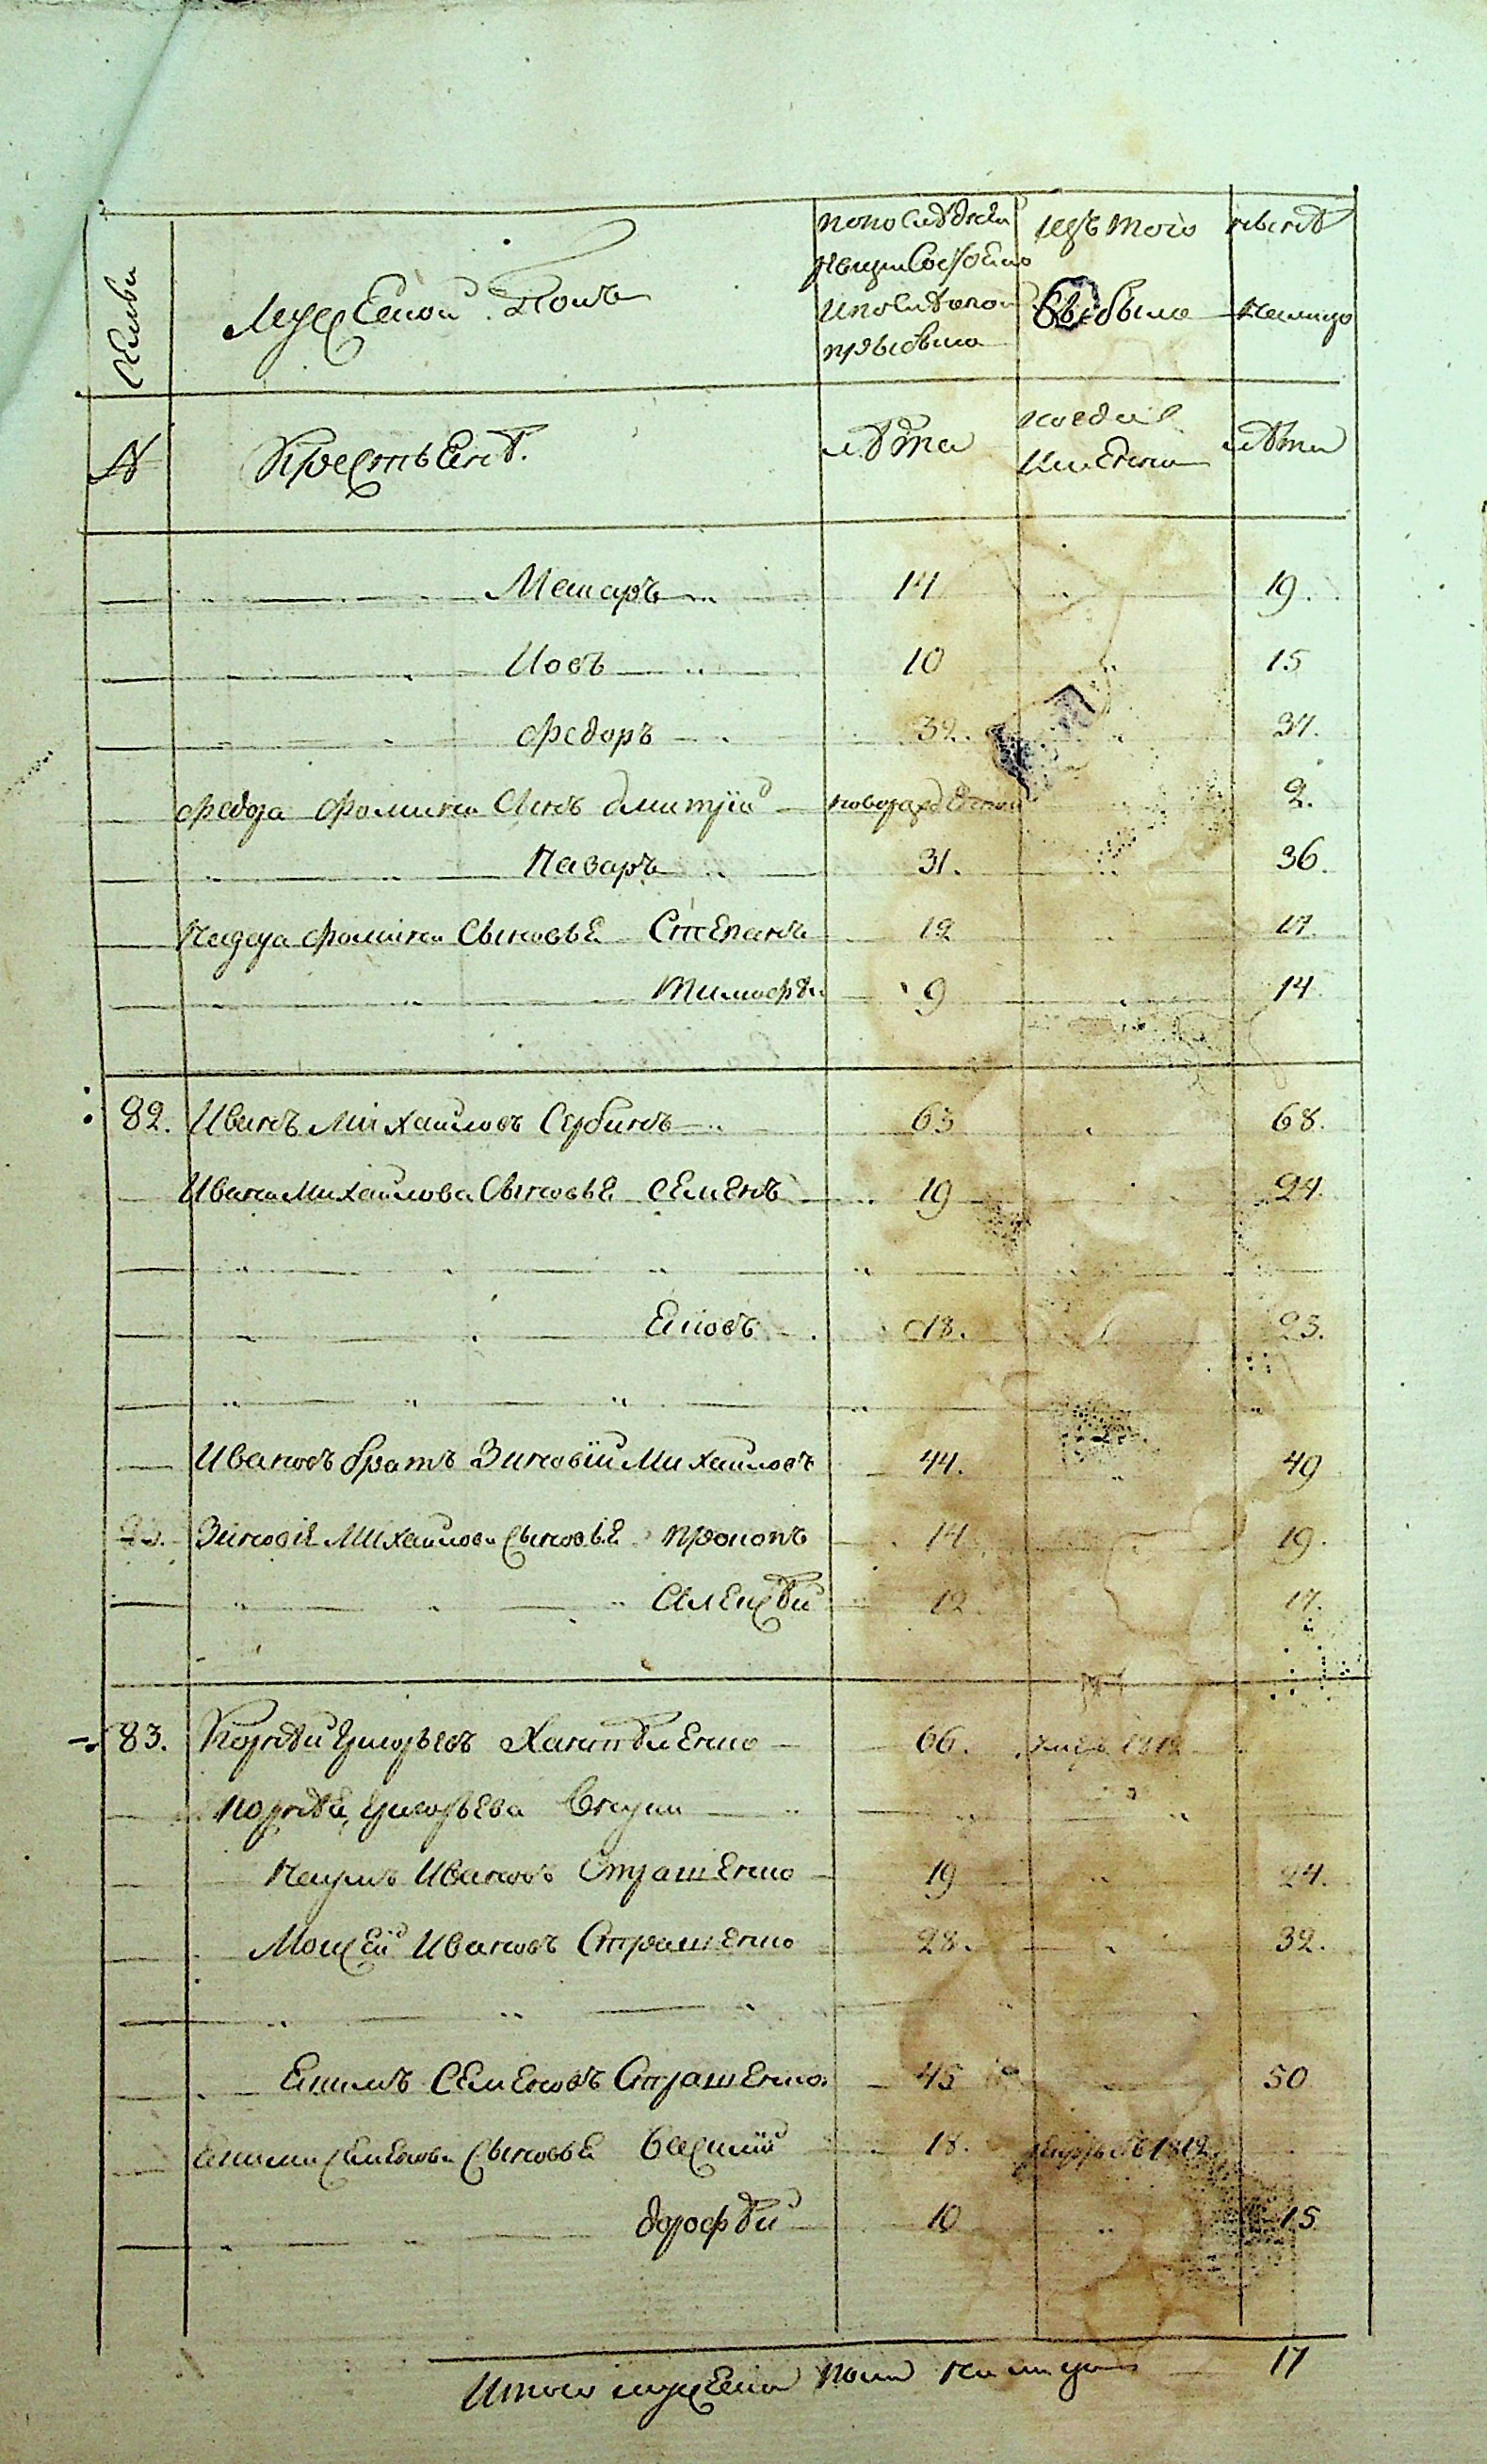 Семьи
Мужескои Полъ
по последней ревизи Состояло и после оной прибыло
изъ того выбыло
ныне на лицо
№
Крестьяне.
лѣта
когда именно
лѣта
Макаръ 14 19.
Иовъ 10 15
Федоръ 32. 37.
Федора Фомина Сынъ дмитрій новорожденной 2.
Назаръ 31. 36.
Назара Фомина Сыновьѣ Степанъ 12 17.
Тимофѣй 9 14
82. Иванъ Михайловъ Сербинъ 63 68.
Ивана Михайлова Сыновьѣ Семенъ 19 24.
Яковъ 18. 23.
Ивановъ братъ Зиновій Михайловъ 44. 49
Зиновіѣ Михайлова Сыновьѣ Прокопъ 14 19.
Алексѣй 12 17.
83. Корнѣй Григорьевъ 66. 1812
Корнѣя Григорьева Внуки
Наумъ Ивановъ Страшенко 19 24.
Мокѣй Ивановъ Страшенко 28. 32.
Екимъ Семеновъ Страшенко 45 50
Екима Семенова Сыновьѣ Василій 18. 1812
дорофѣй 10 15
Итого мужеска пола на лицо 17